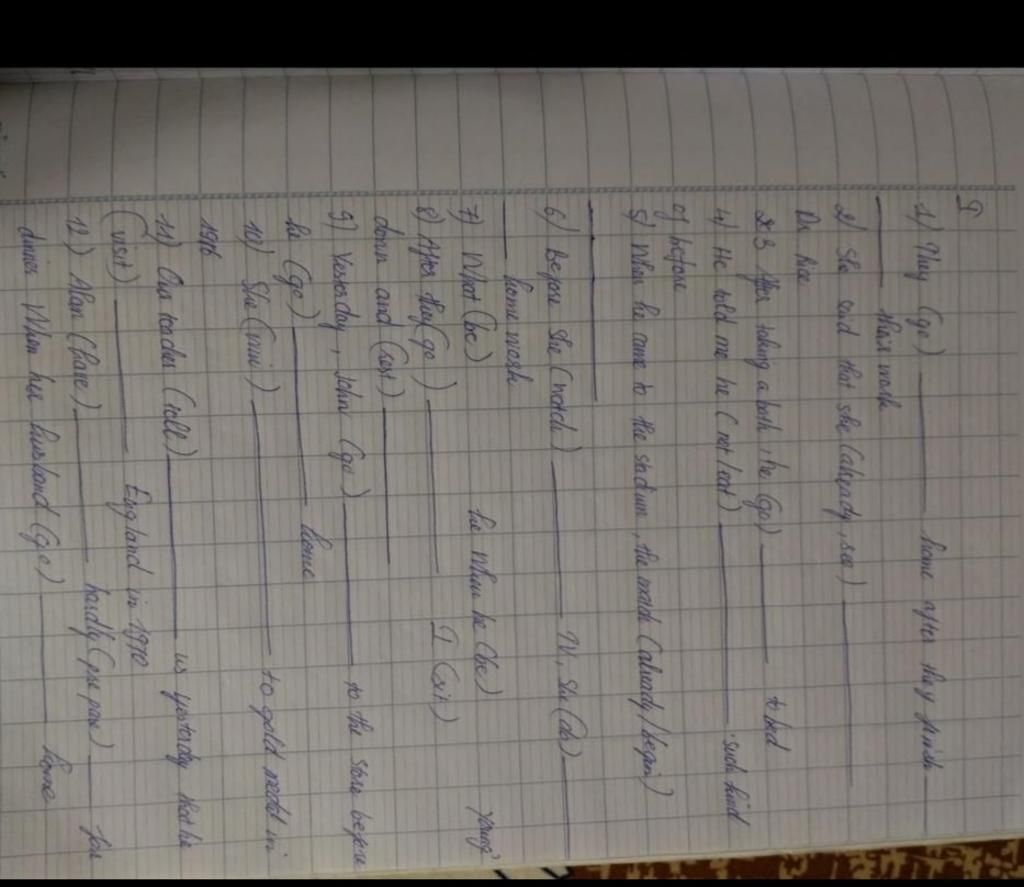 I
1) They (go) ______ home after they finish ______
______ their work
2) She said that she (already, see) ______
Dr. Rice
3 After taking a bath, he (go) ______ to bed
4) He told me he (not/eat) ______ such kind
of before
5) When he came to the stadium, the match (already/begin)
______
6) Before She (watch) ______ TV, She (do) ______
______ homework
7) What (be) he When he (be) young?
8) After they (go) ______ I (sit)
down and (rest) ______
9) Yesterday, John (go) ______ to the store before
he (go) ______ home
10) She (win) ______ to gold medal in
1976
11) Our teacher (tell) ______ us yesterday that he
(visit) ______ England in 1970
12) Alan (have) ______ hardly (prepare) ______ for
dinner When her husband (go) ______ home